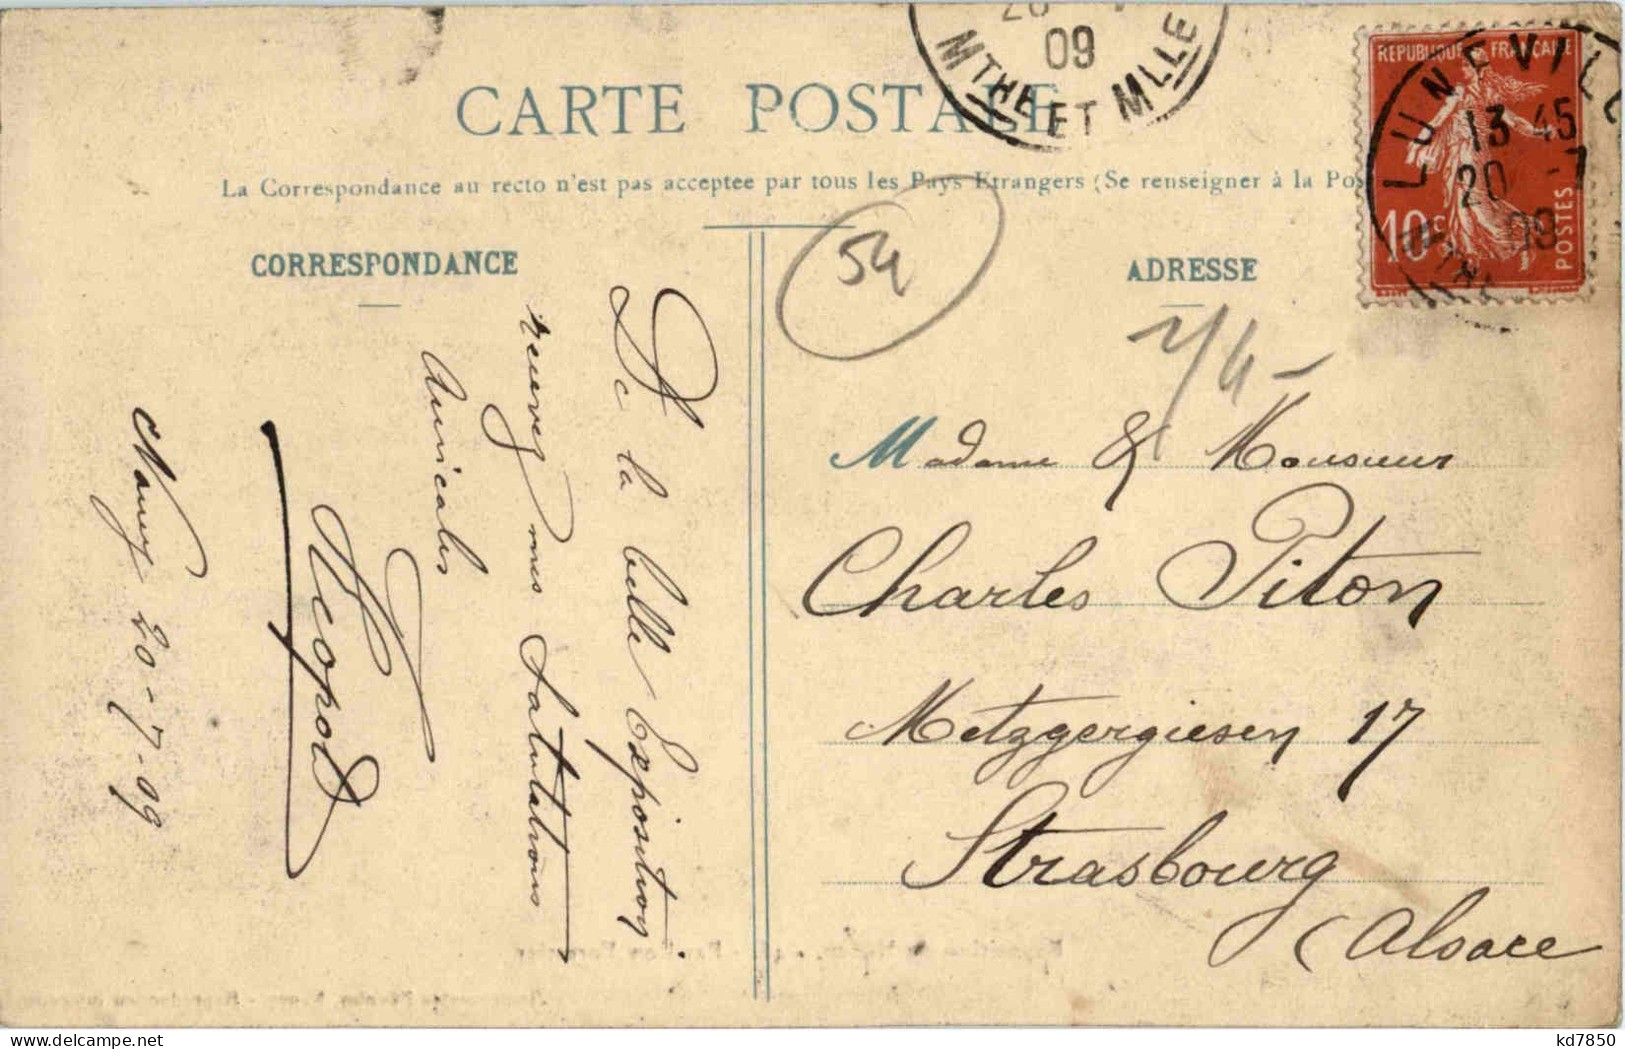 CARTE POSTALE
La Correspondance au recto n'est pas acceptee par tous les Pays Etrangers (Se renseigner à la Pos
CORRESPONDANCE
ADRESSE
De la belle Exposition
recevez mes Salutations
Amicales
Leopold
Nancy 20-7-09
54
Madame & Monsieur
Charles Piton
Metzgergiesen 17
Strasbourg
(Alsace
REPUBLIQUE FRANÇAISE
10c
POSTES
LUNEVILLE
13 45
20 -7
09
09
MTHE ET MLLE
kd7850